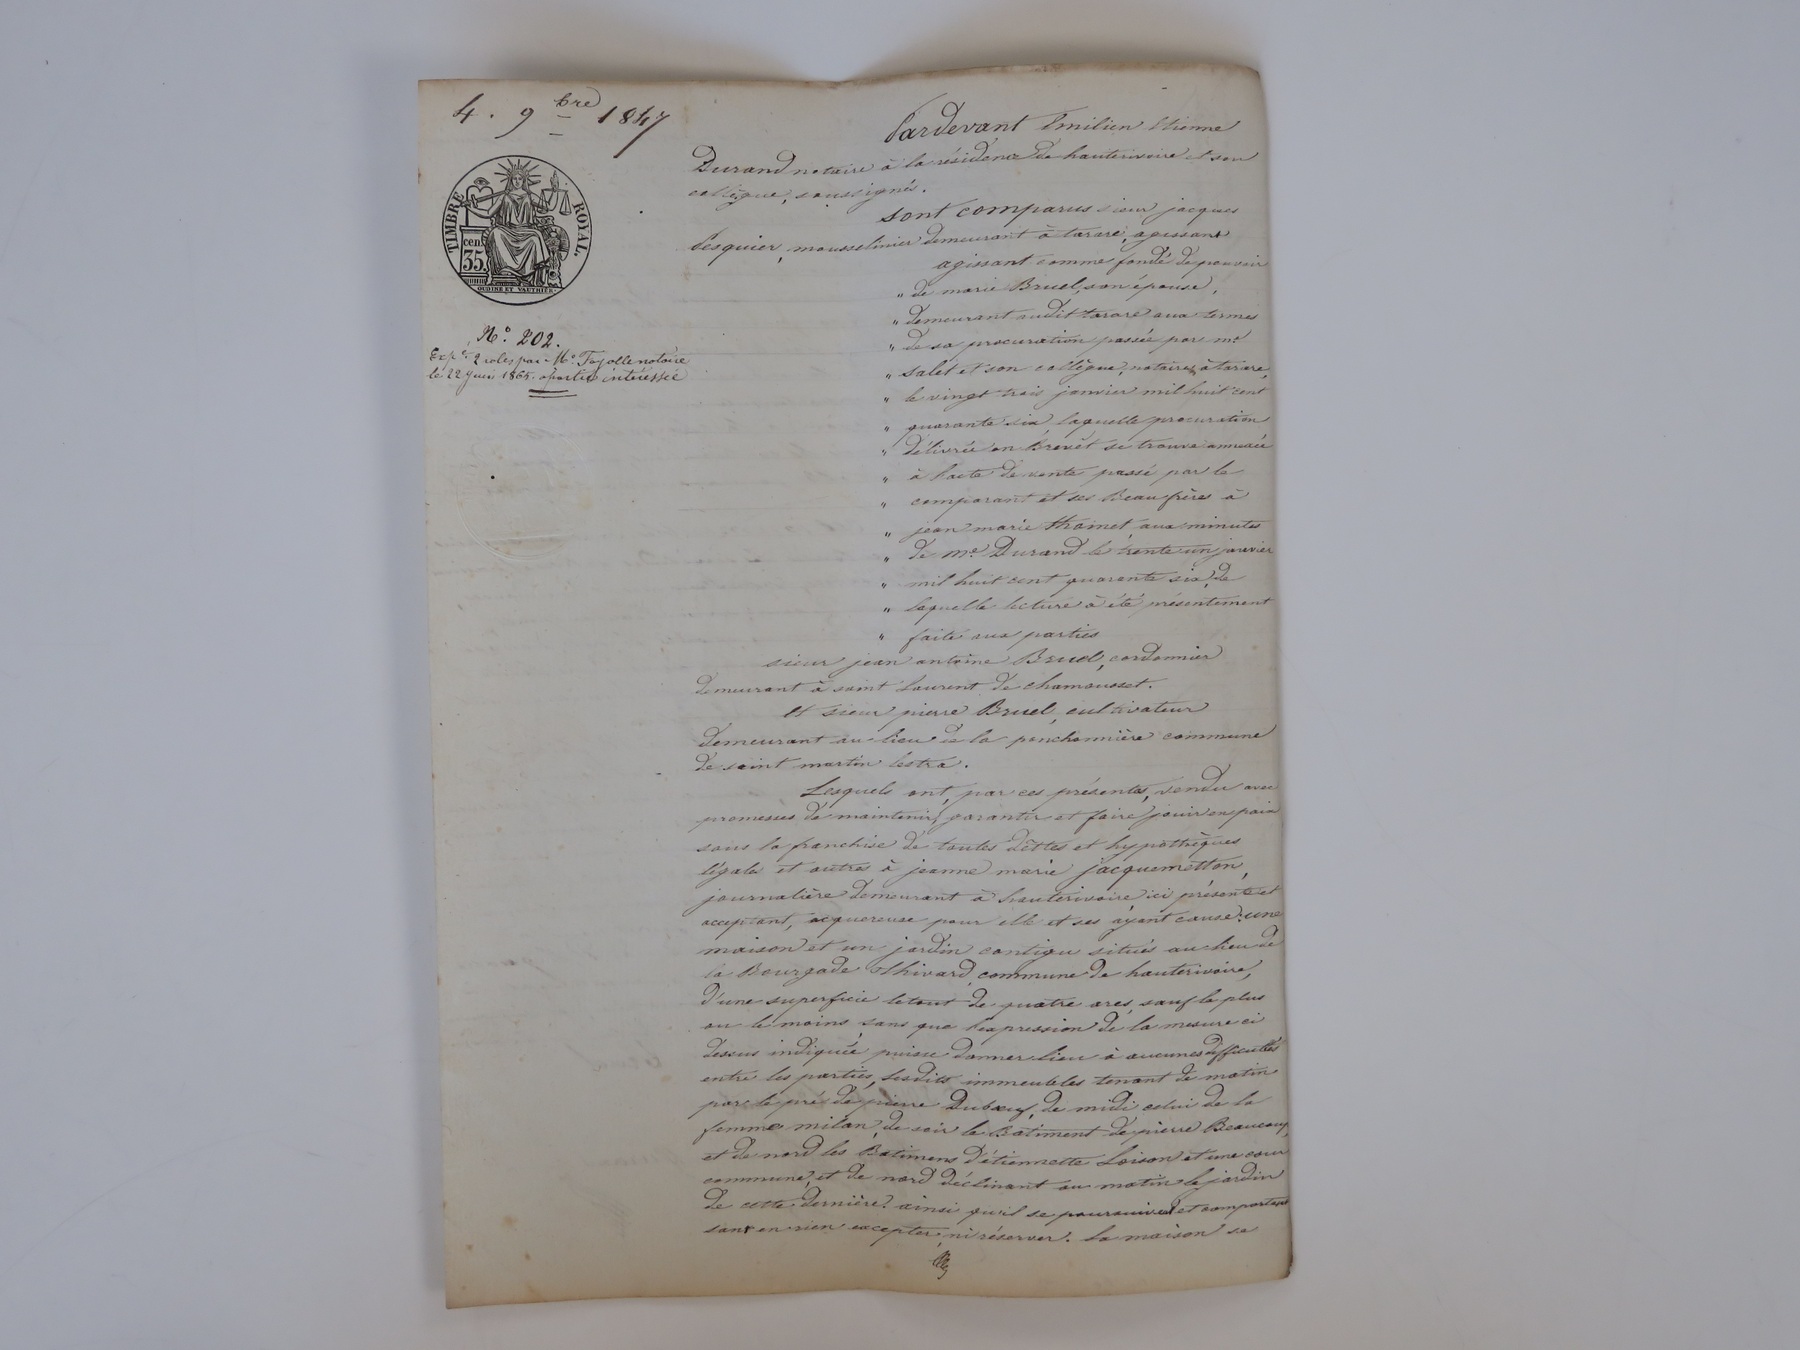 4. 9bre 1847
TIMBRE ROYAL.
cen. 35.
OUDINE ET VAUTHIER.
N.° 202.
Expon 2 roles par Me. Fayolle notaire
le 22 juin 1865. a partie intéressée
Pardevant Emilien Etienne
Durand notaire à la résidence de hauterivoire et son
collègue, soussignés.
sont comparus sieur jacques
Pesquier, mousselinier demeurant à tarare, agissant
agissant comme fondé de pouvoir
" de marie Bruel, son épouse,
" demeurant audit tarare aux termes
" de sa procuration passée par me
" salet et son collègue, notaires à tarare,
" le vingt trois janvier mil huit cent
" quarante six, laquelle procuration
" délivrée en Brevêt se trouve annexée
" à l'acte de vente passé par le
" comparant et ses Beaufrères à
" jean marie thomet aux minutes
" de me. Durand le trente un janvier
" mil huit cent quarante six, de
" laquelle lecture à été présentement
" faite aux parties
sieur jean antoine Bruel, cordonnier
demeurant à saint Laurent de chamousset.
et sieur pierre Bruel, cultivateur
demeurant au lieu de la ponchonnière commune
de saint martin lestra.
Lesquels ont, par ces présentes, vendu avec
promesses de maintenir, garantir et faire jouir en paix
sous la franchise de toutes dêttes et hypothèques
légales et autres à jeanne marie jacquemetton,
journalière demeurant à hauterivoire ici présente et
acceptant, acquereuse pour elle et ses ayant cause: une
maison et un jardin contigu situés au lieu de
la Bourgade Thivard, commune de hauterivoire,
d'une superficie letout de quatre ares, sauf le plus
ou le moins, sans que l'expression de la mesure ci
dessus indiquée puisse donner lieu à aucunes difficultés
entre les parties, lesdits immeubles tenant de matin
par le pré de pierre Dubœuf, de midi celui de la
femme milan, de soir le Batiment de pierre Beaucoup,
et de nord les Batimens d'étiennette Loison et une cour
commune, et de nord déclinant au matin le jardin
de cette dernière. ainsi qu'il se poursuivent et comportent
sans en rien excepter, ni réserver. La maison se